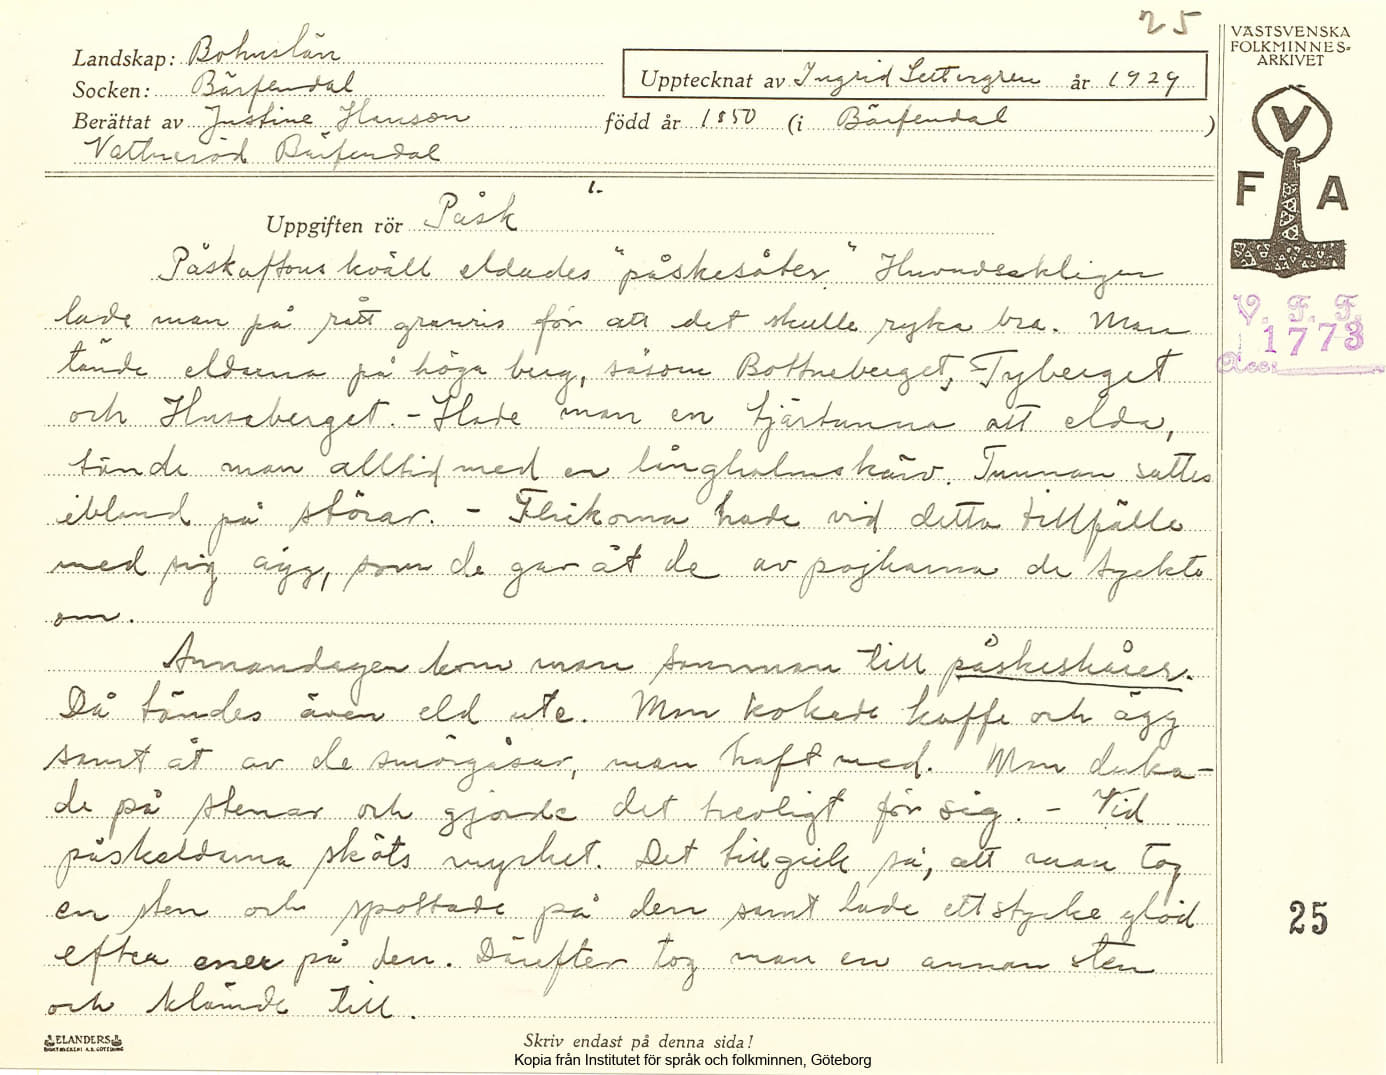 25
Landskap: Bohuslän
Socken: Bärfendal
Upptecknat av Ingrid Settergren år 1929
Berättat av Justine Hanson född år 1850 (i Bärfendal )
Vattneröd Bärfendal
VÄSTSVENSKA
FOLKMINNES-
ARKIVET
V
F A
V. F. F.
1773
Acc:
1.
Uppgiften rör Påsk
Påskaftons kväll eldades "påskesåter." Huvudsakligen
lade man på rått granris för att det skulle ryka bra. Man
tände eldarna på höga berg, såsom Bottneberget, Tyberget
och Husaberget. - Hade man en tjärtunna att elda,
tände man alltid med en långhalmskärv. Tunnan sattes
ibland på störar. - Flickorna hade vid detta tillfälle
med sig ägg, som de gav åt de av pojkarna de tyckte
om.
Annandagen kom man samman till påskeskåier.
Då tändes även eld ute. Man kokade kaffe och ägg
samt åt av de smörgåsar, man haft med. Man duka-
de på stenar och gjorde det trevligt för sig. - Vid
påskeldarna sköts mycket. Det tillgick så, att man tog
en sten och spottade på den samt lade ett stycke glöd
efter ener på den. Därefter tog man en annan sten
och klämde till.
25
ELANDERS
Skriv endast på denna sida!
Kopia från Institutet för språk och folkminnen, Göteborg